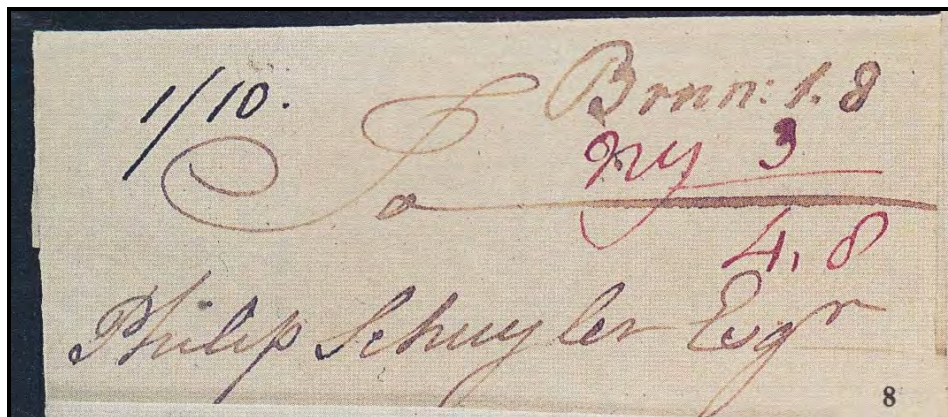 1/10.
Brnn: 1. 8
NY 3
To
4, 8
Philip Schuyler Esqr
8